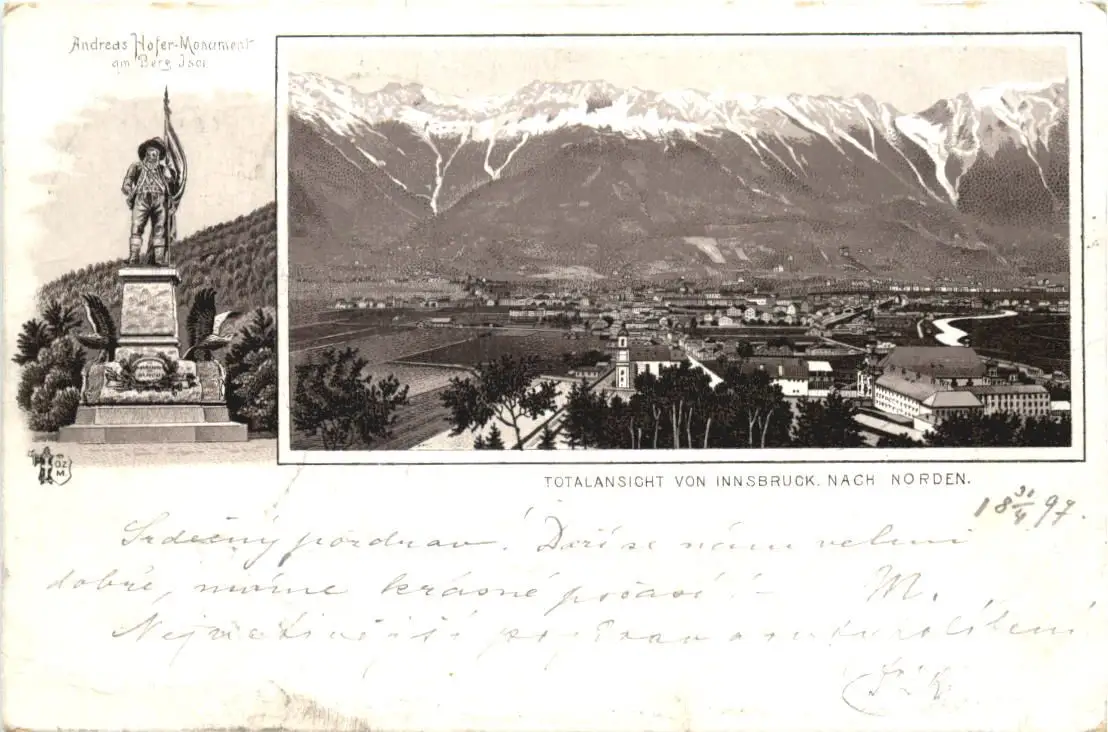 Andreas Hofer-Monument
am Berg Isel
ÖZ
M.
TOTALANSICHT VON INNSBRUCK. NACH NORDEN.
18 30/4 97.
Srdečný pozdrav! Daří se nám velmi
dobře, máme krásné počasí! - M.